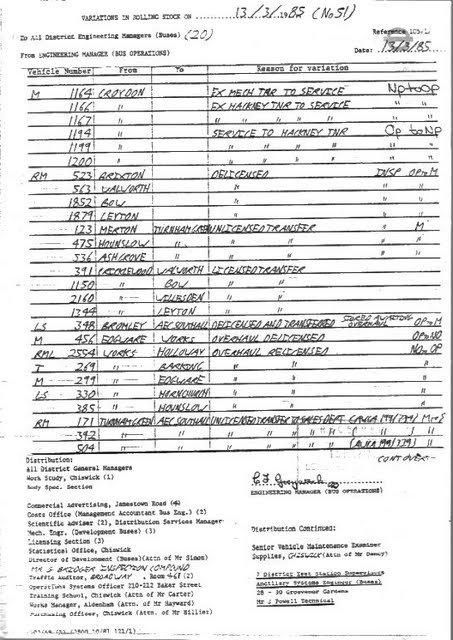 VARIATIONS IN ROLLING STOCK ON 13/3/1985 (No 51)
To All District Engineering Managers (Buses) (20)
Reference
From ENGINEERING MANAGER (BUS OPERATIONS)
Date: 13/3/85
Vehicle Number From To Reason for variation
M 1164 CROYDON EX MECH TNR TO SERVICE Np to Op
1166 " EX HACKNEY TNR TO SERVICE " "
1167 " " " " " " "
1194 " SERVICE TO HACKNEY TNR Op to Np
1199 " " " " " " "
1200 " " " " " " "
RM 523 BRIXTON DELICENSED DISP OP to M
563 WALWORTH " " "
1852 BOW " " "
1879 LEYTON " " "
123 MERTON TURNHAM GREEN UNLICENSED TRANSFER " M
475 HOUNSLOW " " " " "
536 ASH GROVE " " " " "
391 CRICKLEWOOD WALWORTH LICENSED TRANSFER
1150 " BOW " "
2160 " WILLESDEN " "
1344 " LEYTON " "
LS 398 BROMLEY AEC SOUTHALL DELICENSED AND TRANSFERRED STORED AWAITING OVERHAUL OP to M
M 456 EDGWARE WORKS OVERHAUL DELICENSED OP to NO
RML 2554 WORKS HOLLOWAY OVERHAUL RELICENSED NO to OP
T 269 " BARKING " " "
M 299 " EDGWARE " " "
LS 330 " HORNCHURCH " " "
385 " HOUNSLOW " " "
RM 171 TURNHAM GREEN AEC SOUTHALL UNLICENSED TRANSFER TO SALES DEPT M to S
392 " " " " " " "
504 " " " " " "
CONT OVER -
Distribution:
All District General Managers
Work Study, Chiswick (1)
Body Spec. Section
ENGINEERING MANAGER (BUS OPERATIONS)
Commercial Advertising, Jamestown Road (4)
Costs Office (Management Accountant Bus Eng.) (2)
Scientific Adviser (2), Distribution Services Manager
Mech. Engr. (Development Buses) (3)
Licensing Section (3)
Statistical Office, Chiswick
Director of Development (Buses)(Attn of Mr Simon)
MR S BRIDGER INSPECTION COMPOUND
Traffic Auditor, BROADWAY, Room 468 (2)
Operations Systems Officer 210-212 Baker Street
Training School, Chiswick (Attn of Mr Carter)
Works Manager, Aldenham (Attn of Mr Hayward)
Purchasing Officer, Chiswick (Attn of Mr Hillier)
Distribution Continued:
Senior Vehicle Maintenance Examiner
Supplies, CHISWICK (Attn of Mr Denny)
7 District Test Station Supervisors
Ancillary Systems Engineer (Buses)
28 - 30 Grosvenor Gardens
Mr J Powell Technical